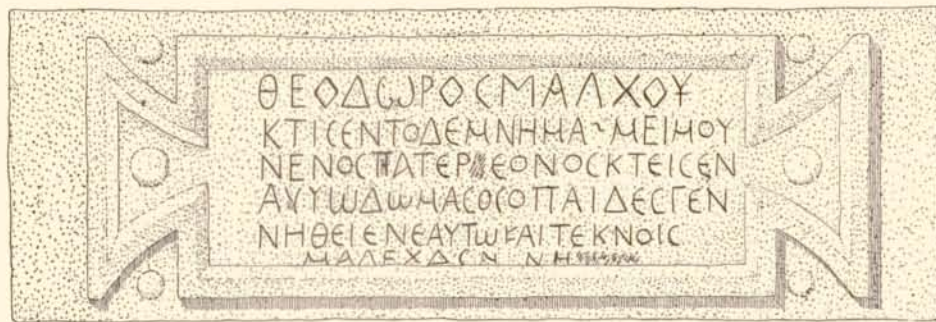 ΘΕΟΔΩΡΟϹΜΑΛΧΟΥ
ΚΤΙϹΕΝΤΟΔΕΜΝΗΜΑ~ΜΕΙΜΟΥ
ΝΕΝΟϹΠΑΤΕΡ ΕΟΝΟϹΚΤΕΙϹΕΝ
ΑΥΥΙѠΔѠΜΑϹΟϹΟΠΑΙΔΕϹΓΕΝ
ΝΗΘΕΙΕΝΕΑΥΤѠΚΑΙΤΕΚΝΟΙϹ
ΜΑΛΕΧΔ